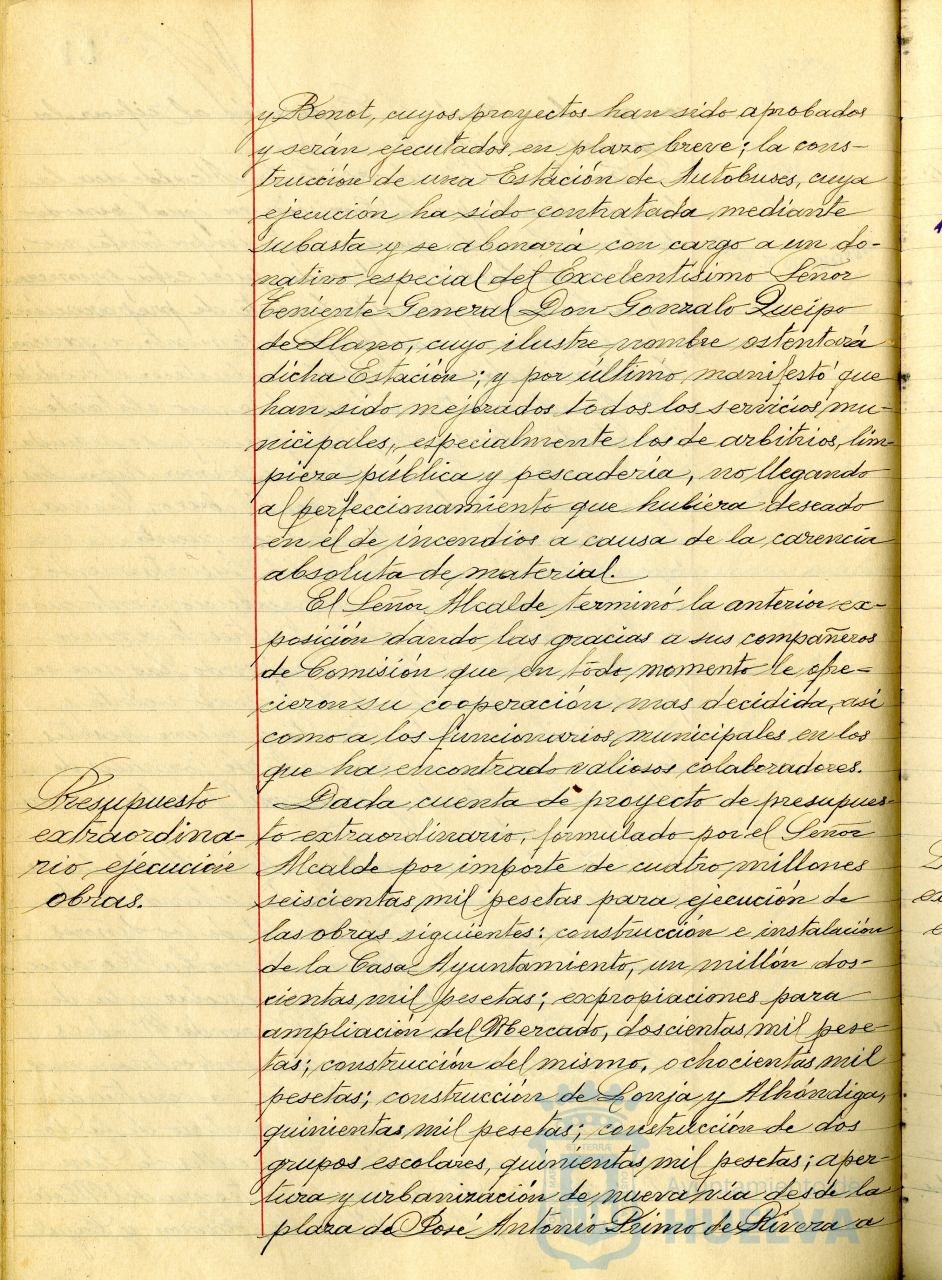 y Benot, cuyos proyectos han sido aprobados
y serán ejecutados en plazo breve; la cons-
trucción de una Estación de Autobuses, cuya
ejecución ha sido contratada mediante
subasta y se abonará con cargo a un do-
nativo especial del Excelentísimo Señor
Teniente General Don Gonzalo Queipo
de Llano, cuyo ilustre nombre ostentará
dicha Estación; y por último manifestó que
han sido mejorados todos los servicios mu-
nicipales, especialmente los de arbitrios, lim-
pieza pública y pescadería, no llegando
al perfeccionamiento que hubiera deseado
en el de incendios a causa de la carencia
absoluta de material.
El Señor Alcalde terminó la anterior ex-
posición dando las gracias a sus compañeros
de Comisión que en todo momento le ofre-
cieron su cooperación mas decidida, así
como a los funcionarios municipales en los
que ha encontrado valiosos colaboradores.
Presupuesto
extraordina-
rio ejecución
obras.
Dada cuenta de proyecto de presupues-
to extraordinario, formulado por el Señor
Alcalde por importe de cuatro millones
seiscientas mil pesetas para ejecución de
las obras siguientes: construcción e instalación
de la Casa Ayuntamiento, un millón dos-
cientas mil pesetas; expropiaciones para
ampliación del Mercado, doscientas mil pese-
tas; construcción del mismo, ochocientas mil
pesetas; construcción de Lonja y Alhóndiga,
quinientas mil pesetas; construcción de dos
grupos escolares, quinientas mil pesetas; aper-
tura y urbanización de nueva via desde la
plaza de José Antonio Primo de Rivera a
Ayuntamiento de
HUELVA